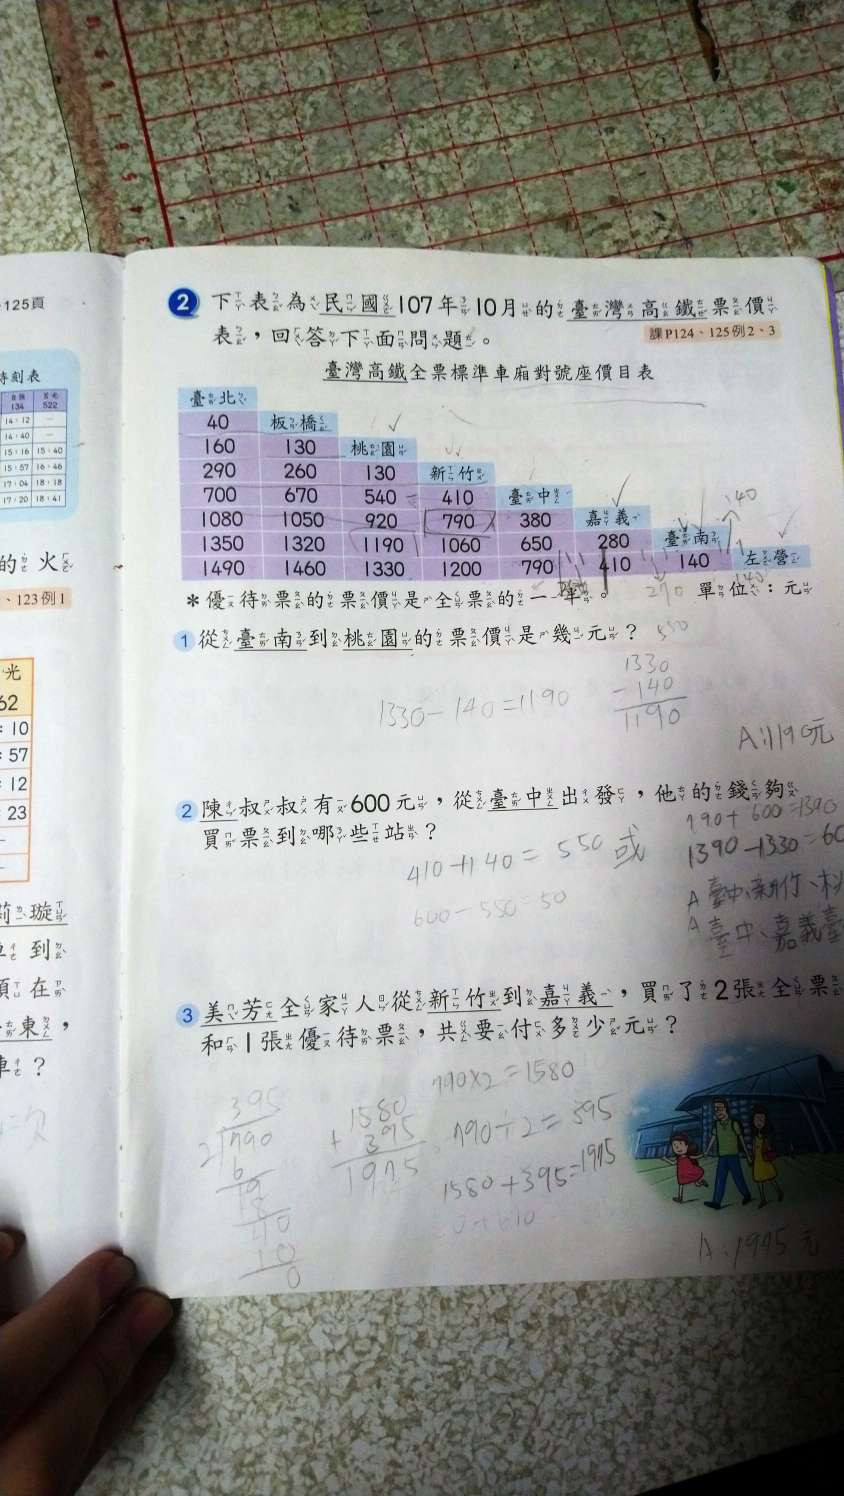 125頁
時刻表
134 522
14:12 —
14:40 —
15:16 15:40
15:57 16:46
17:04 18:18
17:20 18:41
的火
、123例1
光
62
:10
:57
:12
:23
莉璇
到
在
東，
車？
2 下表為民國107年10月的臺灣高鐵票價
表，回答下面問題。
課P124、125例2、3
臺灣高鐵全票標準車廂對號座價目表
臺北
40 板橋
160 130 桃園
290 260 130 新竹
700 670 540 410 臺中
1080 1050 920 790 380 嘉義
1350 1320 1190 1060 650 280 臺南
1490 1460 1330 1200 790 410 140 左營
140
140
270
550
＊優待票的票價是全票的一半。 單位：元
1 從臺南到桃園的票價是幾元？
1330-140=1190
1330
-140
1190
A:1190元
2 陳叔叔有600元，從臺中出發，他的錢夠
買票到哪些站？
410+140=550或
600-550=50
790+600=1390
1390-1330=60
A 臺中、新竹、
A 臺中、嘉義
3 美芳全家人從新竹到嘉義，買了2張全票
和1張優待票，共要付多少元？
790×2=1580
790÷2=395
1580+395=1975
395
2 790
6
19
18
10
10
0
1580
+ 395
1975
A:1975元